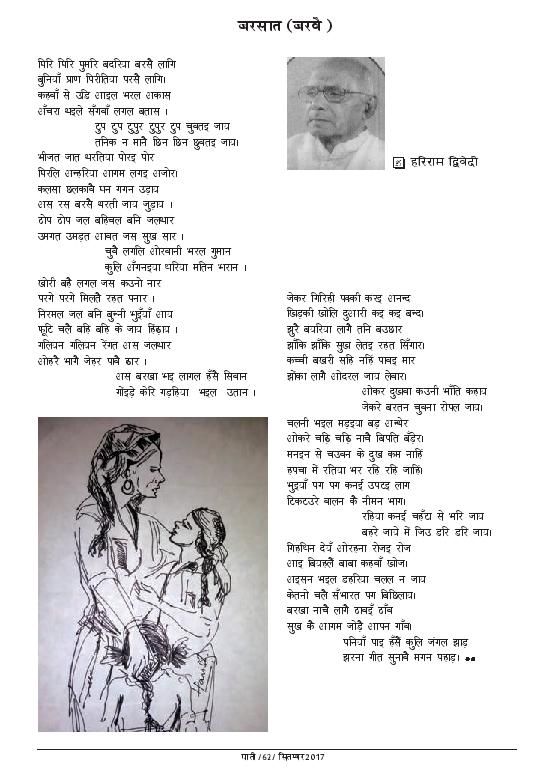 बरसात (बरवै )
पिरि पिरि पुमरि बदरिया बरसै लागि
बुनियाँ प्राण पिरीतिया परसै लागि।
कहवाँ से उड़ि आइल भरल अकास
अँचरा थइले सँगवाँ लगल बतास ।
टुप टुप टुपुर टुपुर टुप चुवतइ जाय
तनिक न मानै छिन छिन छुवतइ जाय।
भीजत जात धरतिया पोरइ पोर
पिरलि अन्हरिया आगम लगइ अजोर।
कलसा छलकावै घन गगन उड़ाय
अस रस बरसै धरती जाय जुड़ाय ।
ढोप ढोप जल बहिचल बनि जलधार
उमगत उमड़त आवत जस सुख सार ।
चुवै लगलि ओरवानी भरल गुमान
कुलि अँगनइया थरिया मतिन भरान ।
खोरी बहै लगल जस कउनो नार
परगे परगे मिलतै रहत पनार ।
निरमल जल बनि बुन्नी भुइँयाँ आय
फूटि चलै बहि बहि के जाय हिंढाय ।
गलियन गलियन रेंगत अस जलधार
ओहरै भागै जेहर पावै ढार ।
अस बरखा भइ लागल हँसै सिवान
गोंइड़े केरि गड़हिया भइल उतान ।
हरिराम द्विवेदी
जेकर गिरिही पक्की करइ अनन्द
खिड़की खोलि दुआरी कइ कइ बन्द।
झुरै बयरिया लागै तनि बउछार
झाँकि झाँकि सुख लेतइ रहत सिंगार।
कच्ची बखरी सहि नहिं पावइ मार
झोंका लागै ओदरल जाय लेवार।
ओकर दुखवा कउनी भाँति कहाय
जेकरे बरतन चुवना रोपल जाय।
चलनी भइल मड़इया बड़ अन्धेर
ओकरे चढ़ि चढ़ि नाचै बिपति बँड़ेर।
मनइन से चउवन के दुख कम नाहिं
हपचा में रतिया भर रहि रहि जाहिं।
भुइवाँ पग पग कनई उपटइ लाग
टिकटउरे वालन कै नीमन भाग।
रहिया कनई चहँटा से भरि जाय
बहरे जाये में जिउ डरि डरि जाय।
गिहथिन देयँ ओरहना रोजइ रोज
आइ बियहलैं बाबा कहवाँ खोज।
अइसन भइल डहरिया चलल न जाय
केतनो चलै सँभारत पग बिछिलाय।
बरखा नाचै लागै ठावइँ ठाँव
सुख कै आगम जोहै आपन गाँव।
पनियाँ पाइ हँसै कुलि जंगल झाड़
झरना गीत सुनावै मगन पहाड़।
पाती /62/ सितम्बर 2017